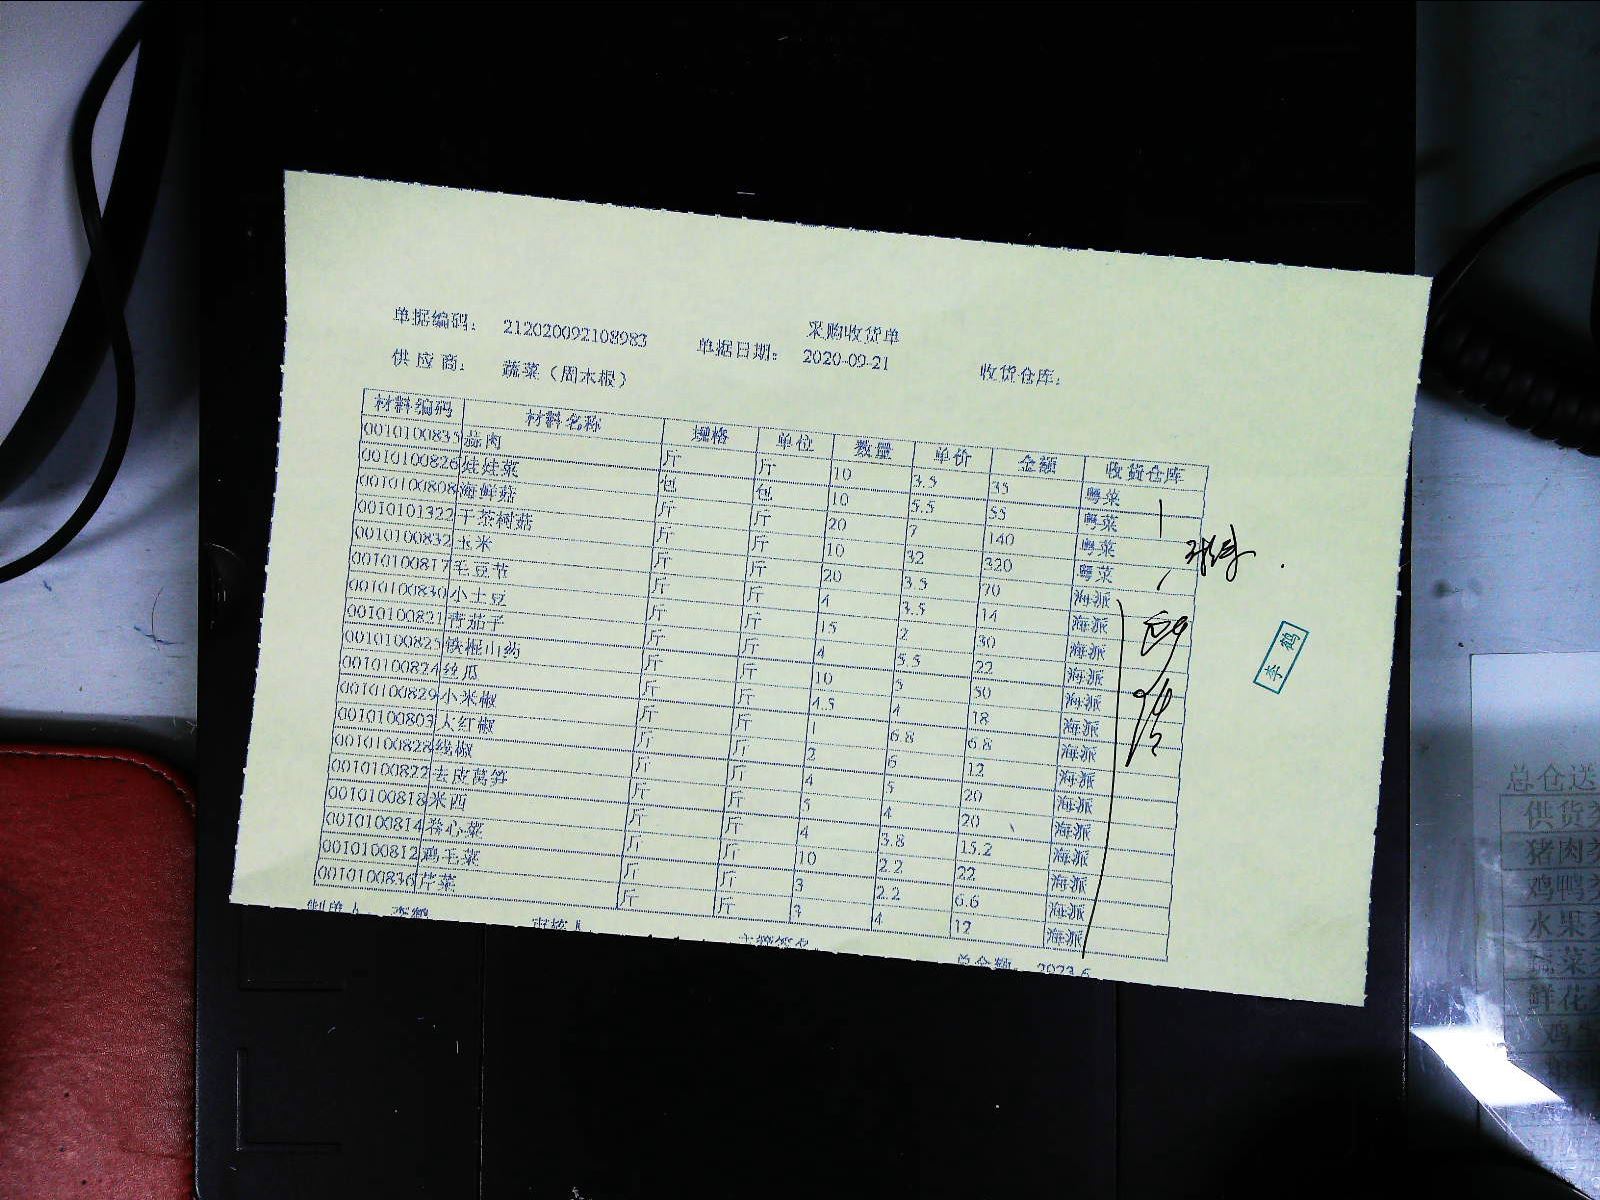 采购收货单
单据编码： 212020092108983 单据日期： 2020-09-21 收货仓库：
供应商： 蔬菜（周木根）
材料编码 材料名称 规格 单位 数量 单价 金额 收货仓库
0010100835 蒜肉 斤 斤 10 3.5 35 粤菜
0010100826 娃娃菜 包 包 10 5.5 55 粤菜
0010100808 海鲜菇 斤 斤 20 7 140 粤菜
0010101322 干茶树菇 斤 斤 10 32 320 粤菜
0010100832 玉米 斤 斤 20 3.5 70 海派
0010100817 毛豆节 斤 斤 4 3.5 14 海派
0010100830 小土豆 斤 斤 15 2 30 海派
0010100821 青茄子 斤 斤 4 5.5 22 海派
0010100825 铁棍山药 斤 斤 10 5 50 海派
0010100824 丝瓜 斤 斤 4.5 4 18 海派
0010100829 小米椒 斤 斤 1 6.8 6.8 海派
0010100803 大红椒 斤 斤 2 6 12 海派
0010100828 线椒 斤 斤 4 5 20 海派
0010100822 去皮莴笋 斤 斤 5 4 20 海派
0010100818 米西 斤 斤 4 3.8 15.2 海派
0010100814 卷心菜 斤 斤 10 2.2 22 海派
0010100812 鸡毛菜 斤 斤 3 2.2 6.6 海派
0010100836 芹菜 斤 斤 3 4 12 海派
李鹤
总仓送
供货
猪肉
鸡鸭
水果
蔬菜
鲜花
鸡